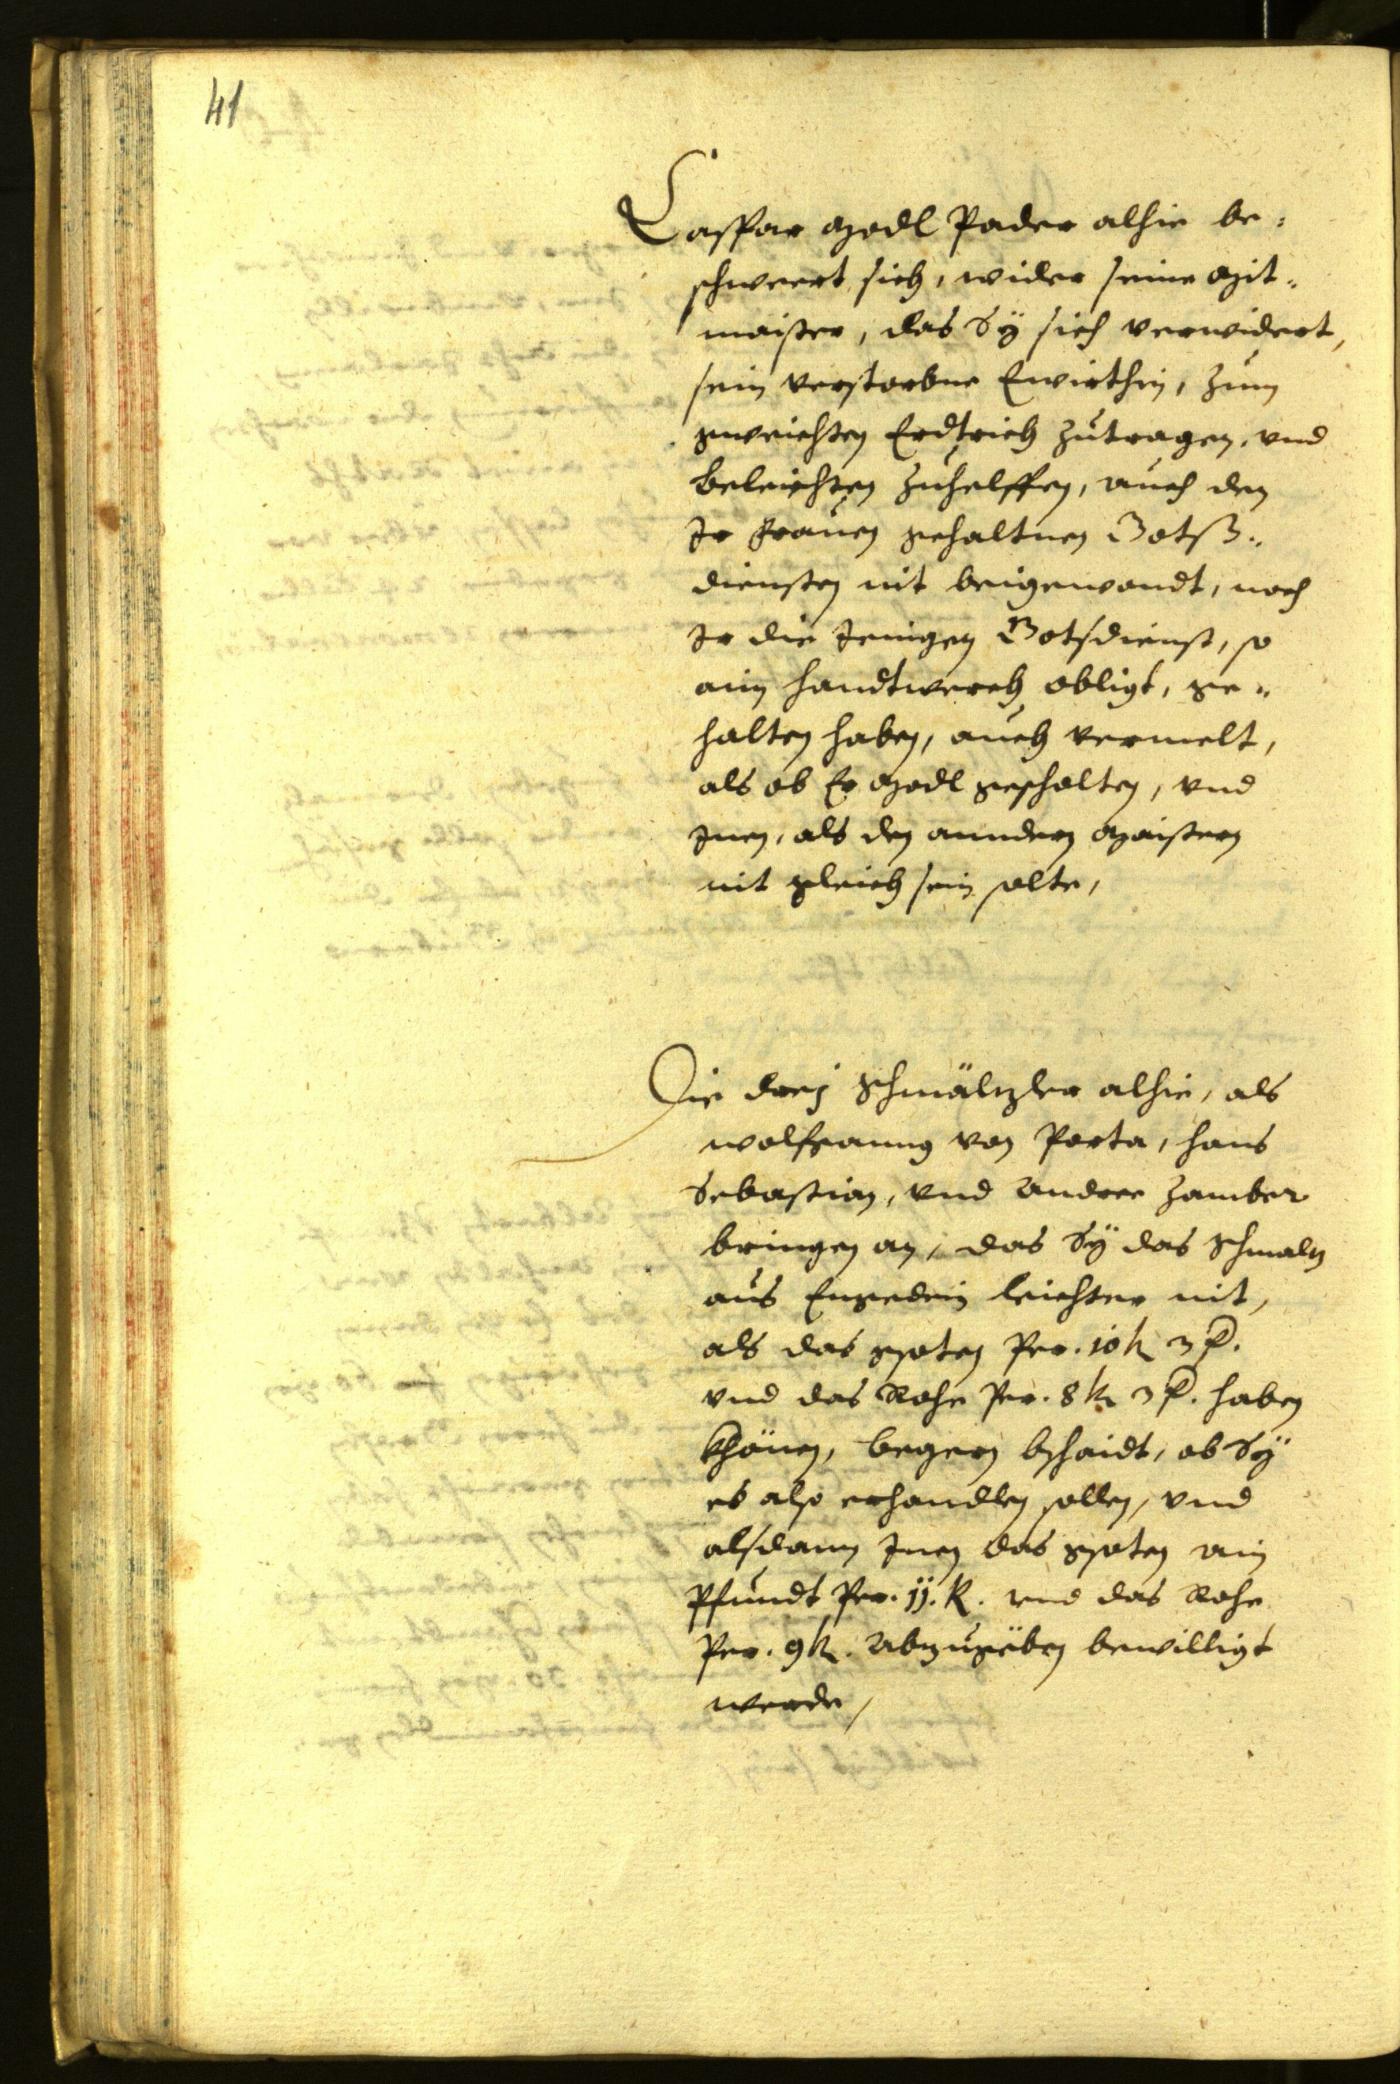 41
Casspar Modl Pader alhie be¬
schweert sich, wider seine Mit¬
maister, das Sÿ sich verwidert,
sein verstorbne Ewirthin, zum
geweichten Erdtrich zutragen, vnd
beleichten zuhelffen, auch den
Ir Frauen gehaltnen Gotß¬
diensten nit beigewondt, noch
Ir die Jenigen Gotsdienst, so
aim handtwerch obligt, ge¬
halten haben, auch vermelt,
als ob Er Modl gescholten, vnd
Inen, als den anndern Maistern
nit gleich sein solte,
Die dreÿ Schmältzler alhie, als
wolfgaung von Porta, hans
Sebastian, vnd Andree Zamber
bringen an, das Sÿ das Schmaltz
aus Engedein leichter nit,
als das gsoten Per. 10 k 3 f.
vnd das Rohe Per. 8 k 3 f. haben
khönen, begern bschaidt, ob Sÿ
es also erhandlen sollen, vnd
alsdann Inen das gsoten ain
Pfundt Per. 11. k. vnd das Rohe
Per. 9 k. Abzugëben bewilligt
werde,